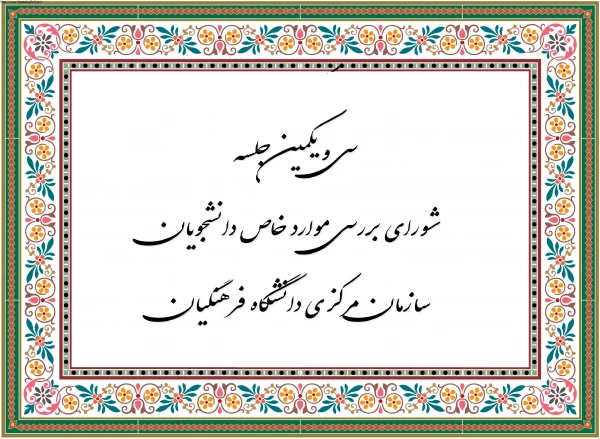 سی و یکمین جلسه
شورای بررسی موارد خاص دانشجویان
سازمان مرکزی دانشگاه فرهنگیان